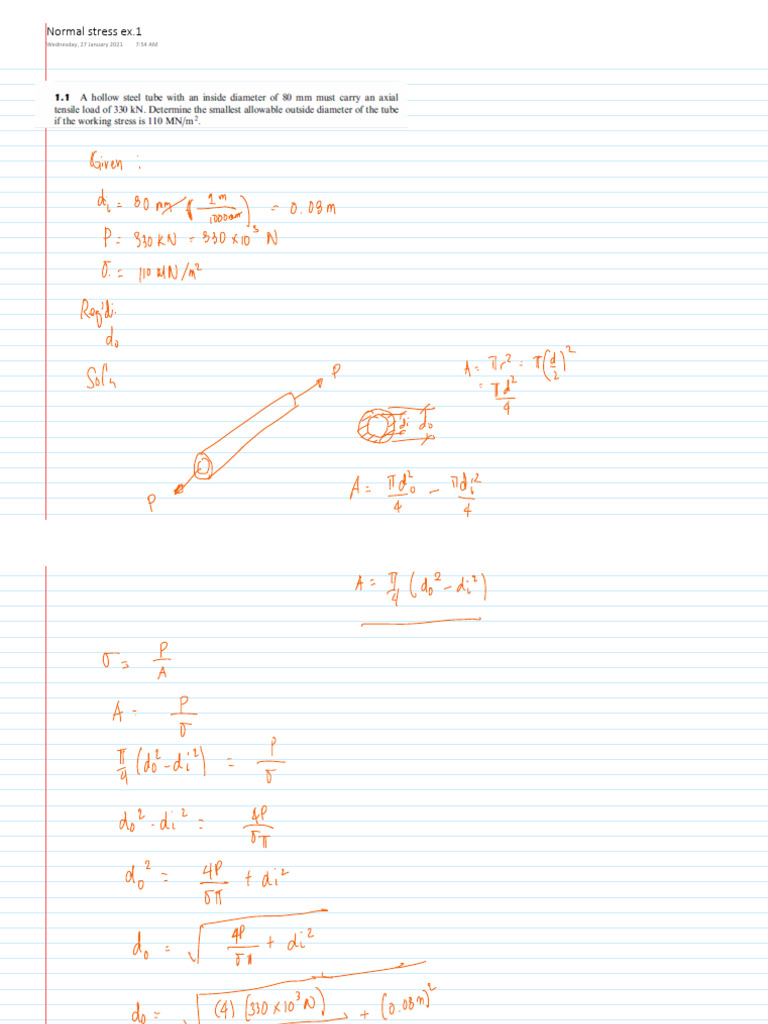 Normal stress ex.1
Wednesday, 27 January 2021 7:54 AM
1.1 A hollow steel tube with an inside diameter of 80 mm must carry an axial
tensile load of 330 kN. Determine the smallest allowable outside diameter of the tube
if the working stress is 110 MN/m².
Given :
dᵢ = 80 mm (1m/1000mm) = 0.08 m
P = 330 KN = 330 × 10³ N
σ = 110 MN/m²
Req'd:
d₀
Sol'n
P
P
A = πr² = π(d/2)²
= πd²/4
dᵢ d₀
A = πd₀²/4 - πdᵢ²/4
A = π/4 (d₀² - dᵢ²)
σ = P/A
A = P/σ
π/4 (d₀² - dᵢ²) = P/σ
d₀² - dᵢ² = 4P/σπ
d₀² = 4P/σπ + dᵢ²
d₀ = √(4P/σπ + dᵢ²)
d₀ = √ (4)(330×10³N) + (0.08m)²